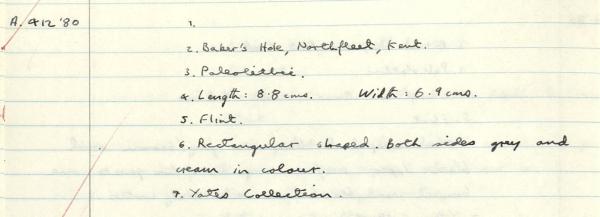 A. 412'80 1.
2. Baker's Hole, Northfleet, Kent.
3. Paleolithic.
4. Length: 8.8 cms. Width: 6.9 cms.
5. Flint.
6. Rectangular shaped. Both sides grey and
cream in colour.
7. Yates Collection.